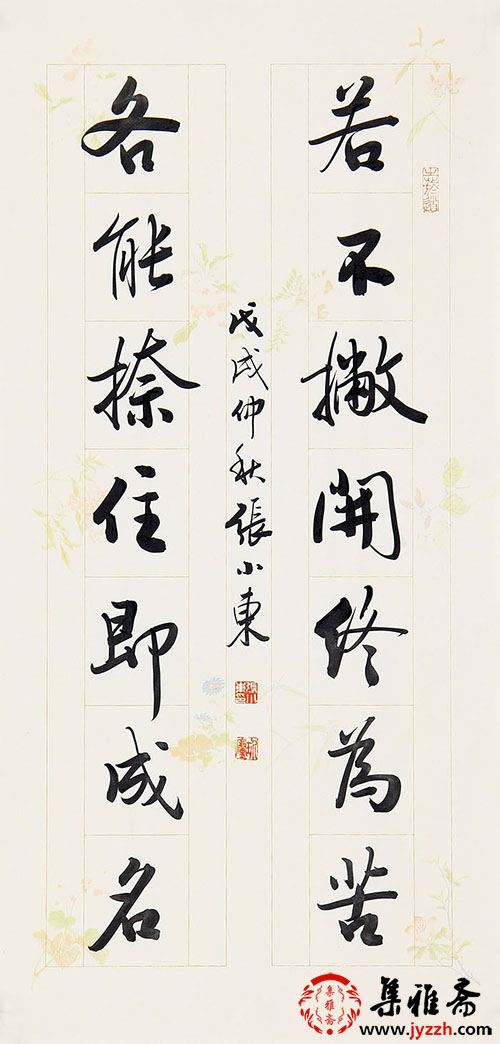 若不撇開終為苦
各能捺住即成名
戊戌仲秋張小東
集雅斋
集雅斋
www.jyzzh.com